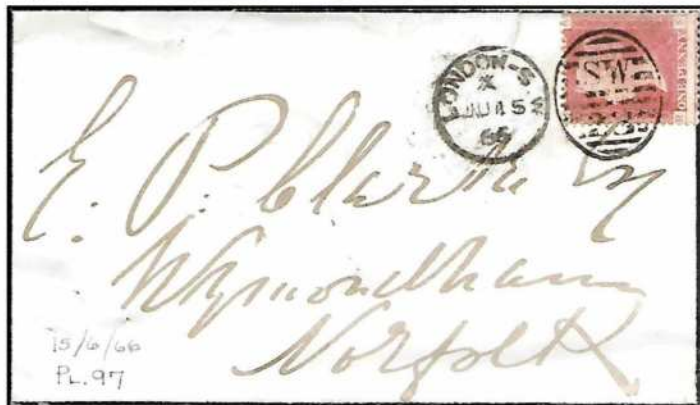 LONDON-S W
X
JU 15
66
SW
ONE PENNY
E. P. Clarke Esq
Wymondham
Norfolk
15/6/66
PL. 97